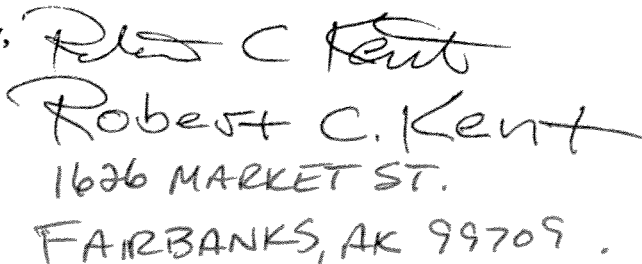 Robert C Kent
Robert C. Kent
1626 MARKET ST.
FAIRBANKS, AK 99709.